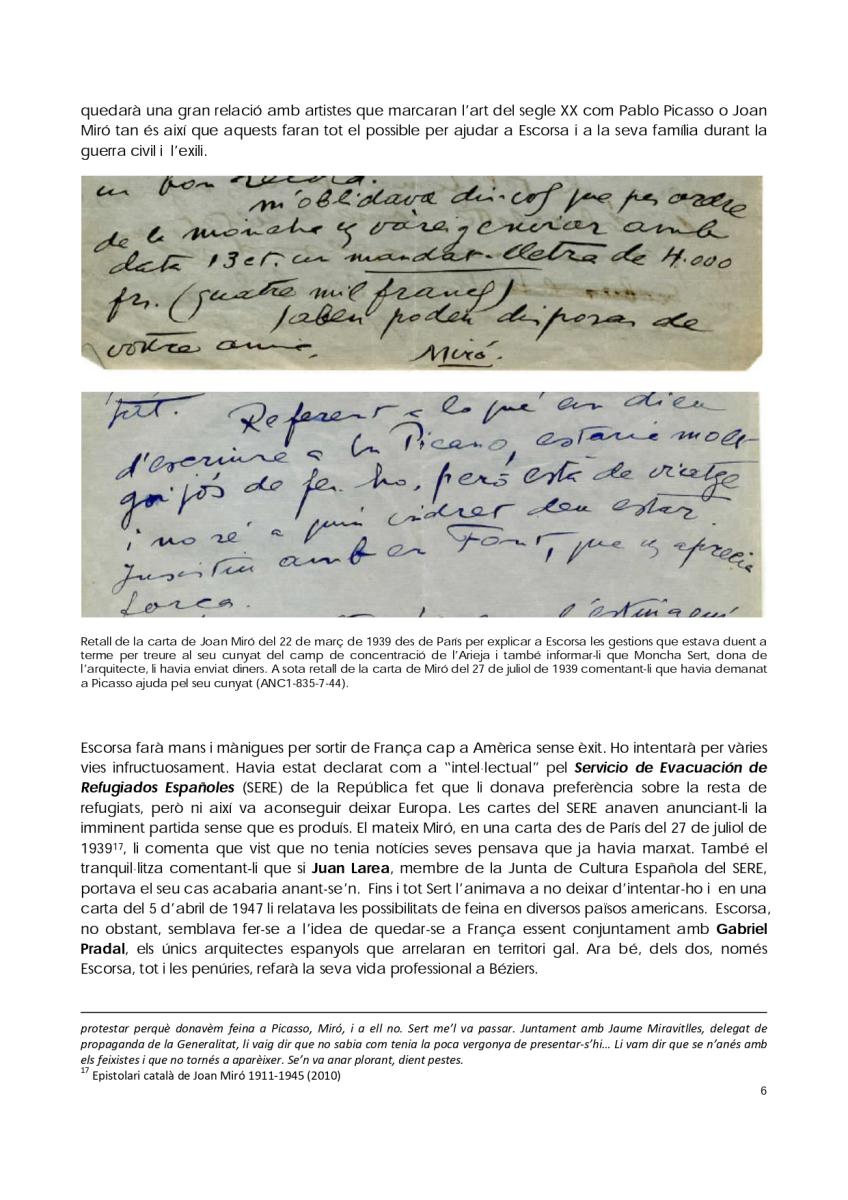 quedarà una gran relació amb artistes que marcaran l'art del segle XX com Pablo Picasso o Joan
Miró tan és així que aquests faran tot el possible per ajudar a Escorsa i a la seva família durant la
guerra civil i  l'exili.
un bon record.
m'oblidava dir-cos que per ordre
de la moncha us vàreig enviar amb
data 13 ct. un mandat-lletra de 4.000
frs. (quatre mil francs)
Saben poden disposar de
vostre amic,
Miró.
Referent a lo que em dieu
d'escriure a En Picasso, estaria molt
goijós de fer-ho, però està de viatge
i no sé a quin indret deu estar.
Insistiu amb en Font, que us aprecia
força.
Retall de la carta de Joan Miró del 22 de març de 1939 des de París per explicar a Escorsa les gestions que estava duent a
terme per treure al seu cunyat del camp de concentració de l'Arieja i també informar-li que Moncha Sert, dona de
l'arquitecte, li havia enviat diners. A sota retall de la carta de Miró del 27 de juliol de 1939 comentant-li que havia demanat
a Picasso ajuda pel seu cunyat (ANC1-835-7-44).
Escorsa farà mans i mànigues per sortir de França cap a Amèrica sense èxit. Ho intentarà per vàries
vies infructuosament. Havia estat declarat com a "intel·lectual" pel Servicio de Evacuación de
Refugiados Españoles (SERE) de la República fet que li donava preferència sobre la resta de
refugiats, però ni així va aconseguir deixar Europa. Les cartes del SERE anaven anunciant-li la
imminent partida sense que es produís. El mateix Miró, en una carta des de París del 27 de juliol de
1939¹⁷, li comenta que vist que no tenia notícies seves pensava que ja havia marxat. També el
tranquil·litza comentant-li que si Juan Larea, membre de la Junta de Cultura Española del SERE,
portava el seu cas acabaria anant-se'n.  Fins i tot Sert l'animava a no deixar d'intentar-ho i  en una
carta del 5 d'abril de 1947 li relatava les possibilitats de feina en diversos països americans.  Escorsa,
no obstant, semblava fer-se a l'idea de quedar-se a França essent conjuntament amb Gabriel
Pradal, els únics arquitectes espanyols que arrelaran en territori gal. Ara bé, dels dos, només
Escorsa, tot i les penúries, refarà la seva vida professional a Béziers.
protestar perquè donavèm feina a Picasso, Miró, i a ell no. Sert me'l va passar. Juntament amb Jaume Miravitlles, delegat de
propaganda de la Generalitat, li vaig dir que no sabia com tenia la poca vergonya de presentar-s'hi… Li vam dir que se n'anés amb
els feixistes i que no tornés a aparèixer. Se'n va anar plorant, dient pestes.
¹⁷ Epistolari català de Joan Miró 1911-1945 (2010)
6